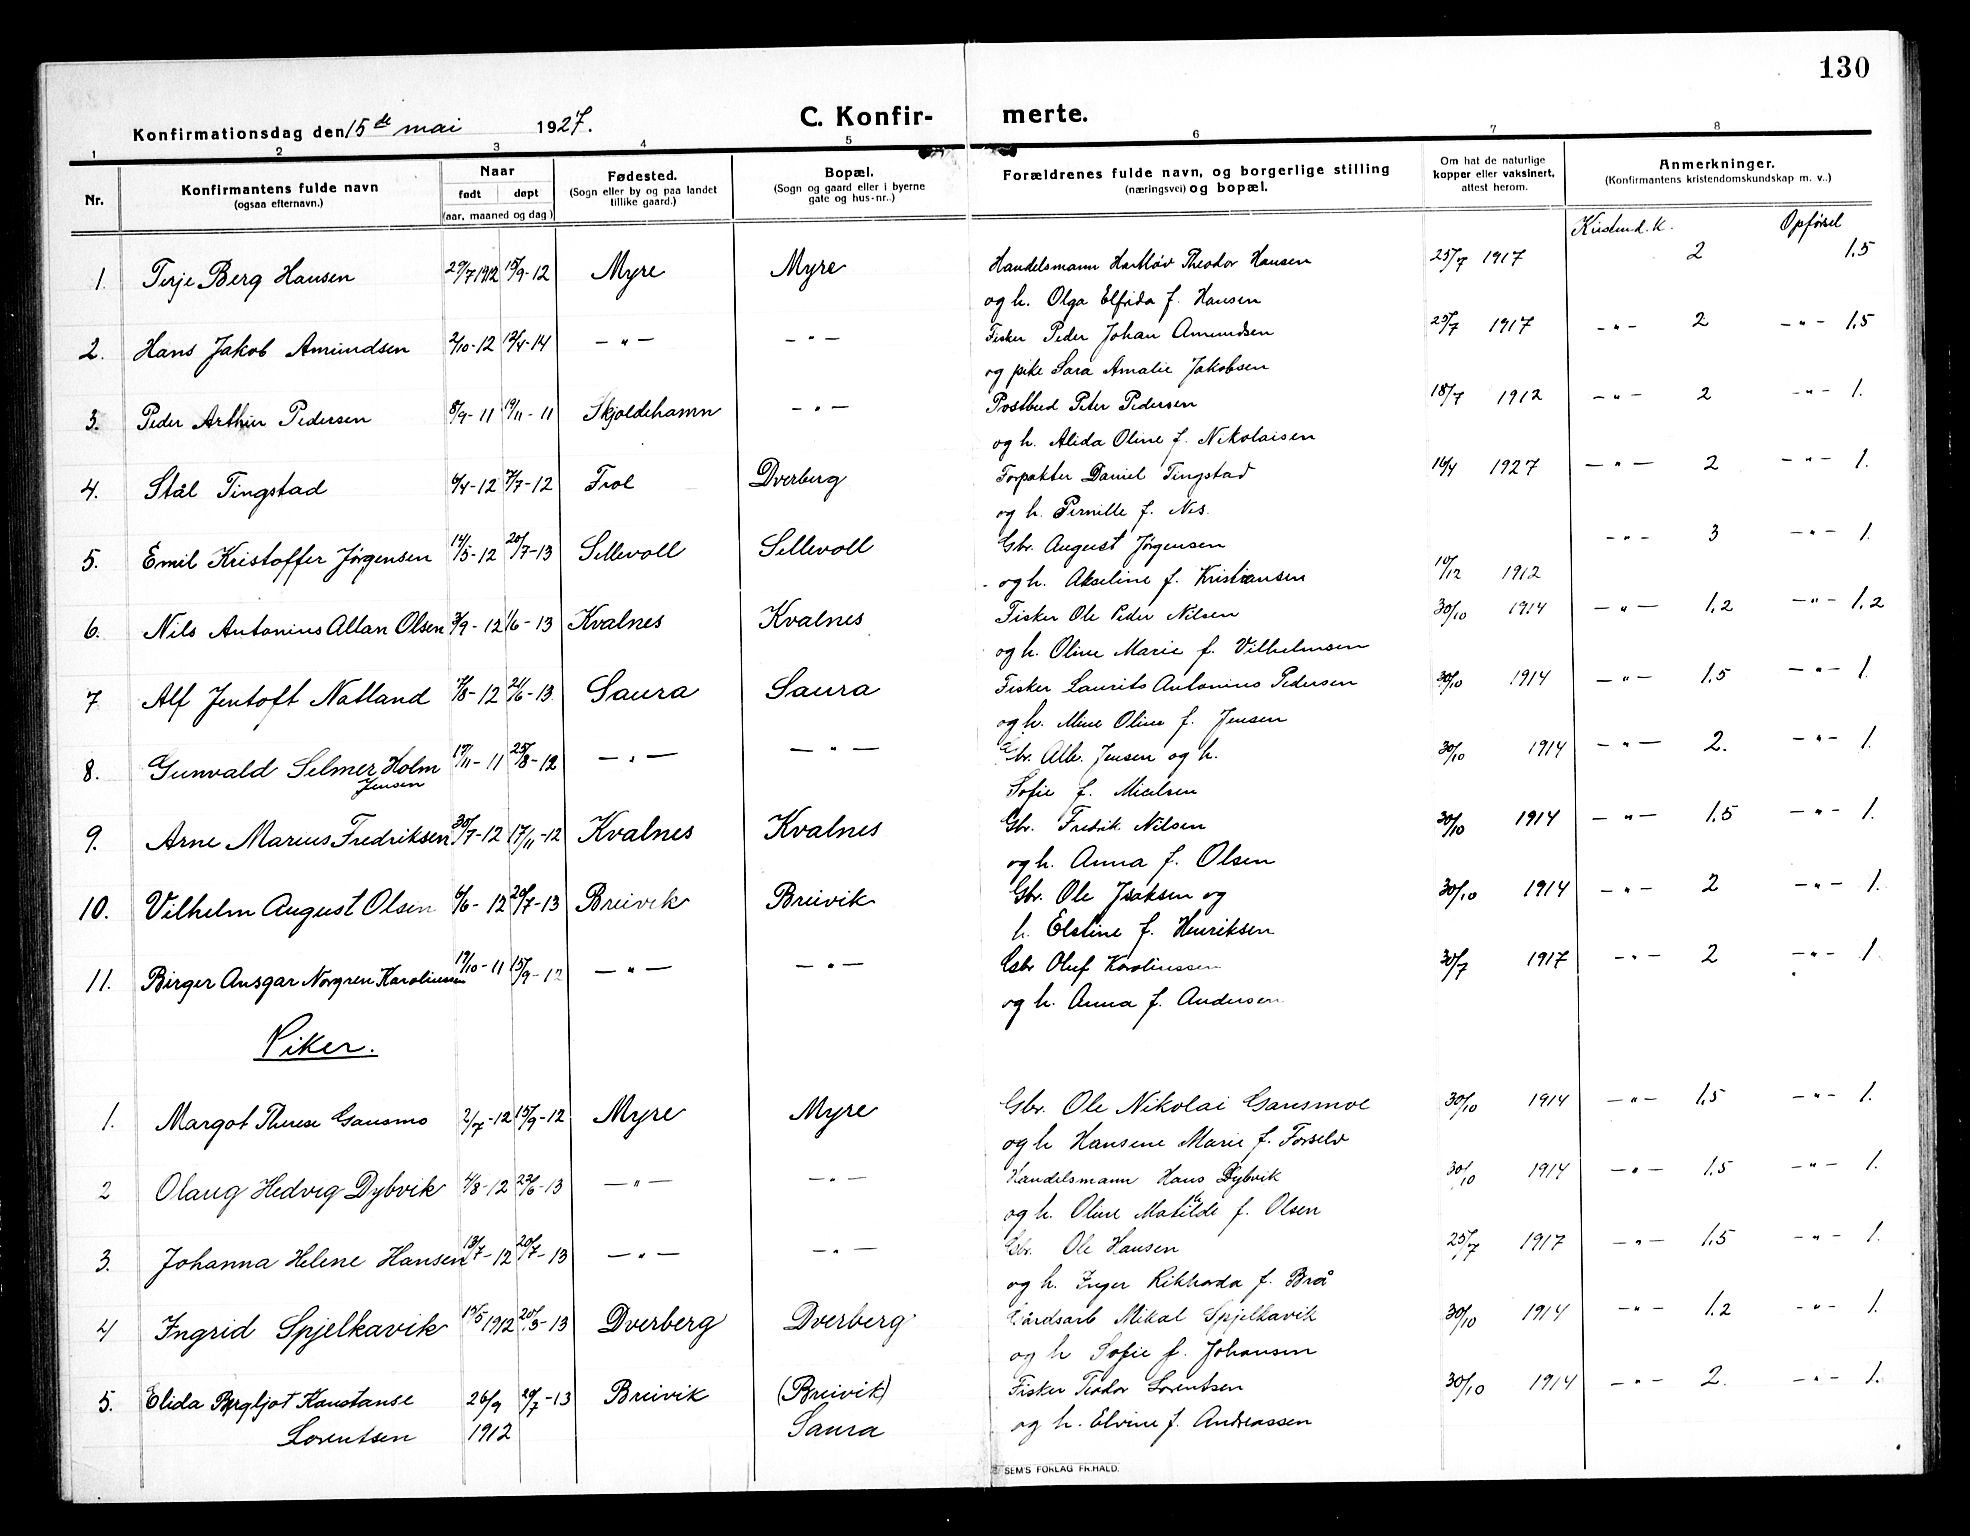 130
Konfirmationsdag den 15de mai 1927.
C. Konfirmerte.
1 2 3 4 5 6 7 8
Nr.
Konfirmantens fulde navn
(ogsaa efternavn.)
Naar
født døpt
(aar, maaned og dag)
Fødested.
(Sogn eller by og paa landet
tillike gaard.)
Bopæl.
(Sogn og gaard eller i byerne
gate og hus-nr..)
Forældrenes fulde navn, og borgerlige stilling
(næringsvei) og bopæl.
Om hat de naturlige
kopper eller vaksinert,
attest herom.
Anmerkninger.
(Konfirmantens kristendomskundskap m. v..)
Kristend. k. Opførsel
1. Terje Berg Hansen 29/7 1912 15/9-12 Myre Myre Handelsmann Hartløv Theodor Hansen 25/7 1917 2 1,5
og h. Olga Elfida f. Hansen
2. Hans Jakob Amundsen 2/10-12 13/4-14 — " — — " — Fisker Peder Johan Amundsen 25/7 1917 — " — 2 — " — 1,5
og pike Sara Amalie Jakobsen
3. Peder Arthur Pedersen 8/9-11 19/11-11 Skjoldehamn — " — Postbud Peter Pedersen 18/7 1912 — " — 2 — " — 1.
og h. Alida Oline f. Nikolaisen
4. Stål Tingstad 6/4-12 7/7-12 Frol Dverberg Forpakter Daniel Tingstad 16/4 1927 — " — 2 — " — 1.
og h. Pernille f. Nes.
5. Emil Kristoffer Jørgensen 14/5-12 20/7-13 Sellevoll Sellevoll Gbr. August Jørgensen — " — 3 — " — 1.
og h. Akseline f. Kristiansen 10/12 1912
6. Nils Antonius Allan Olsen 3/9-12 1/6-13 Kvalnes Kvalnes Fisker Ole Peder Nilsen 30/10 1914 — " — 1,2 — " — 1,2
og h. Oline Marie f. Vilhelmsen
7 Alf Jentoft Natland 7/8-12 21/6-13 Saura Saura Fisker Laurits Antonius Pedersen 30/10 1914 — " — 1,5 — " — 1.
og h. Mine Oline f. Jensen
8. Gunvald Selmer Holm 17/11-11 25/8-12 — " — — " — Gbr. Alb. Jensen og h. 30/10 1914 — " — 2. — " — 1.
Jensen
Sofie f.
9. Arne Marius Fredriksen 30/7-12 17/11-12 Kvalnes Kvalnes Gbr. Fredrik Nilsen 30/10 1914 — " — 1,5 — " — 1.
og h. Anna f. Olsen
10. Vilhelm August Olsen 6/6-12 20/7-13 Breivik Breivik Gbr. Ole Isaksen og 30/10 1914 — " — 2 — " — 1.
h. Elstine f. Henriksen
11. Birger Ansgar Norgren Karoliussen 19/10-11 15/9-12 — " — — " — Gbr Oluf Karoliussen 30/7 1917 — " — 2 — " — 1.
og h. Anna f. Andersen
Piker.
1. Margot Therese Gansmo 2/7-12 15/9-12 Myre Myre Gbr. Ole Nikolai Gansmoe 30/10 1914 — " — 1,5 — " — 1.
og h Hansene Marie f. Forselv
2 Olaug Hedvig Dybvik 4/8-12 22/6-13 — " — — " — Handelsmann Hans Dybvik 30/10 1914 — " — 1,5 — " — 1.
og h. Oline Matilde f. Olsen
3. Johanna Helene Hansen 13/7-12 20/7-13 — " — — " — Gbr. Ole Hansen 25/7 1917 — " — 1,5 — " — 1.
og h. Inger Rikharda f. Brå
4 Ingrid Spjelkavik 15/5 1912 20/3-13 Dverberg Dverberg Gårdsarb Mikal Spjelkavik 30/10 1914 — " — 1.2 — " — 1.
og h Sofie f. Johansen
5. Elida Bergljot Konstanse 26/9 20/7-13 Breivik (Breivik) Fisker Teodor Lorentsen 30/10 1914 — " — 2. — " — 1.
Lorentsen 1912 Saura og h. Elvine f. Andreassen
SEM'S FORLAG FR.HALD.